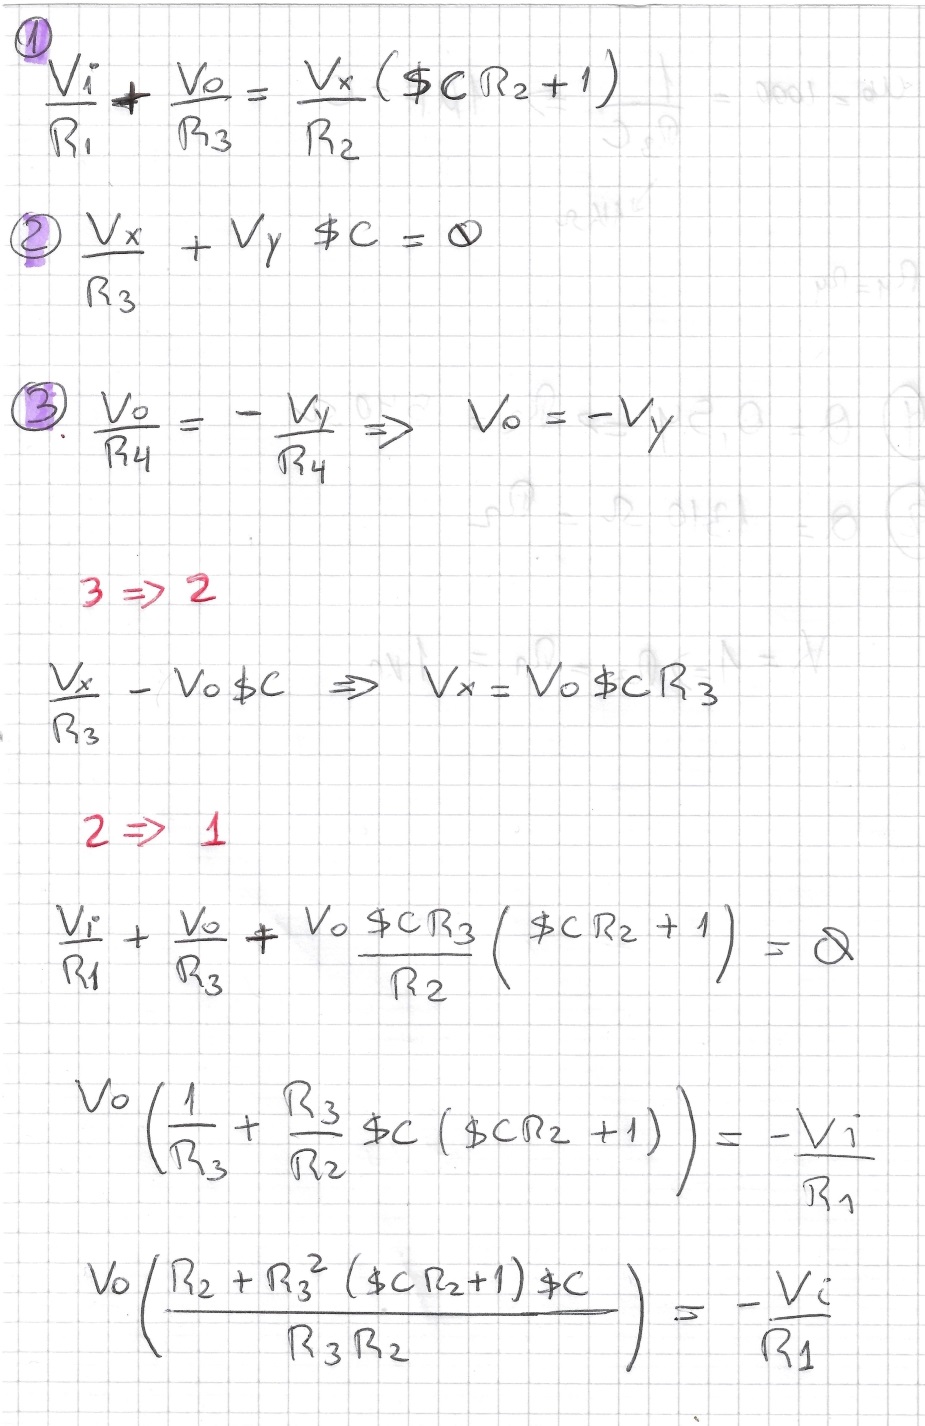 ①
Vi/R1 + Vo/R3 = Vx/R2 ($CR2+1)
② Vx/R3 + Vy $C = 0
③ Vo/R4 = - Vy/R4 => Vo = -Vy
3 => 2
Vx/R3 - Vo$C => Vx = Vo$CR3
2 => 1
Vi/R1 + Vo/R3 + Vo $CR3/R2 ($CR2 + 1) = 0
Vo (1/R3 + R3/R2 $C ($CR2 +1)) = -Vi/R1
Vo (R2 + R3² ($CR2+1) $C / R3R2) = - Vi/R1